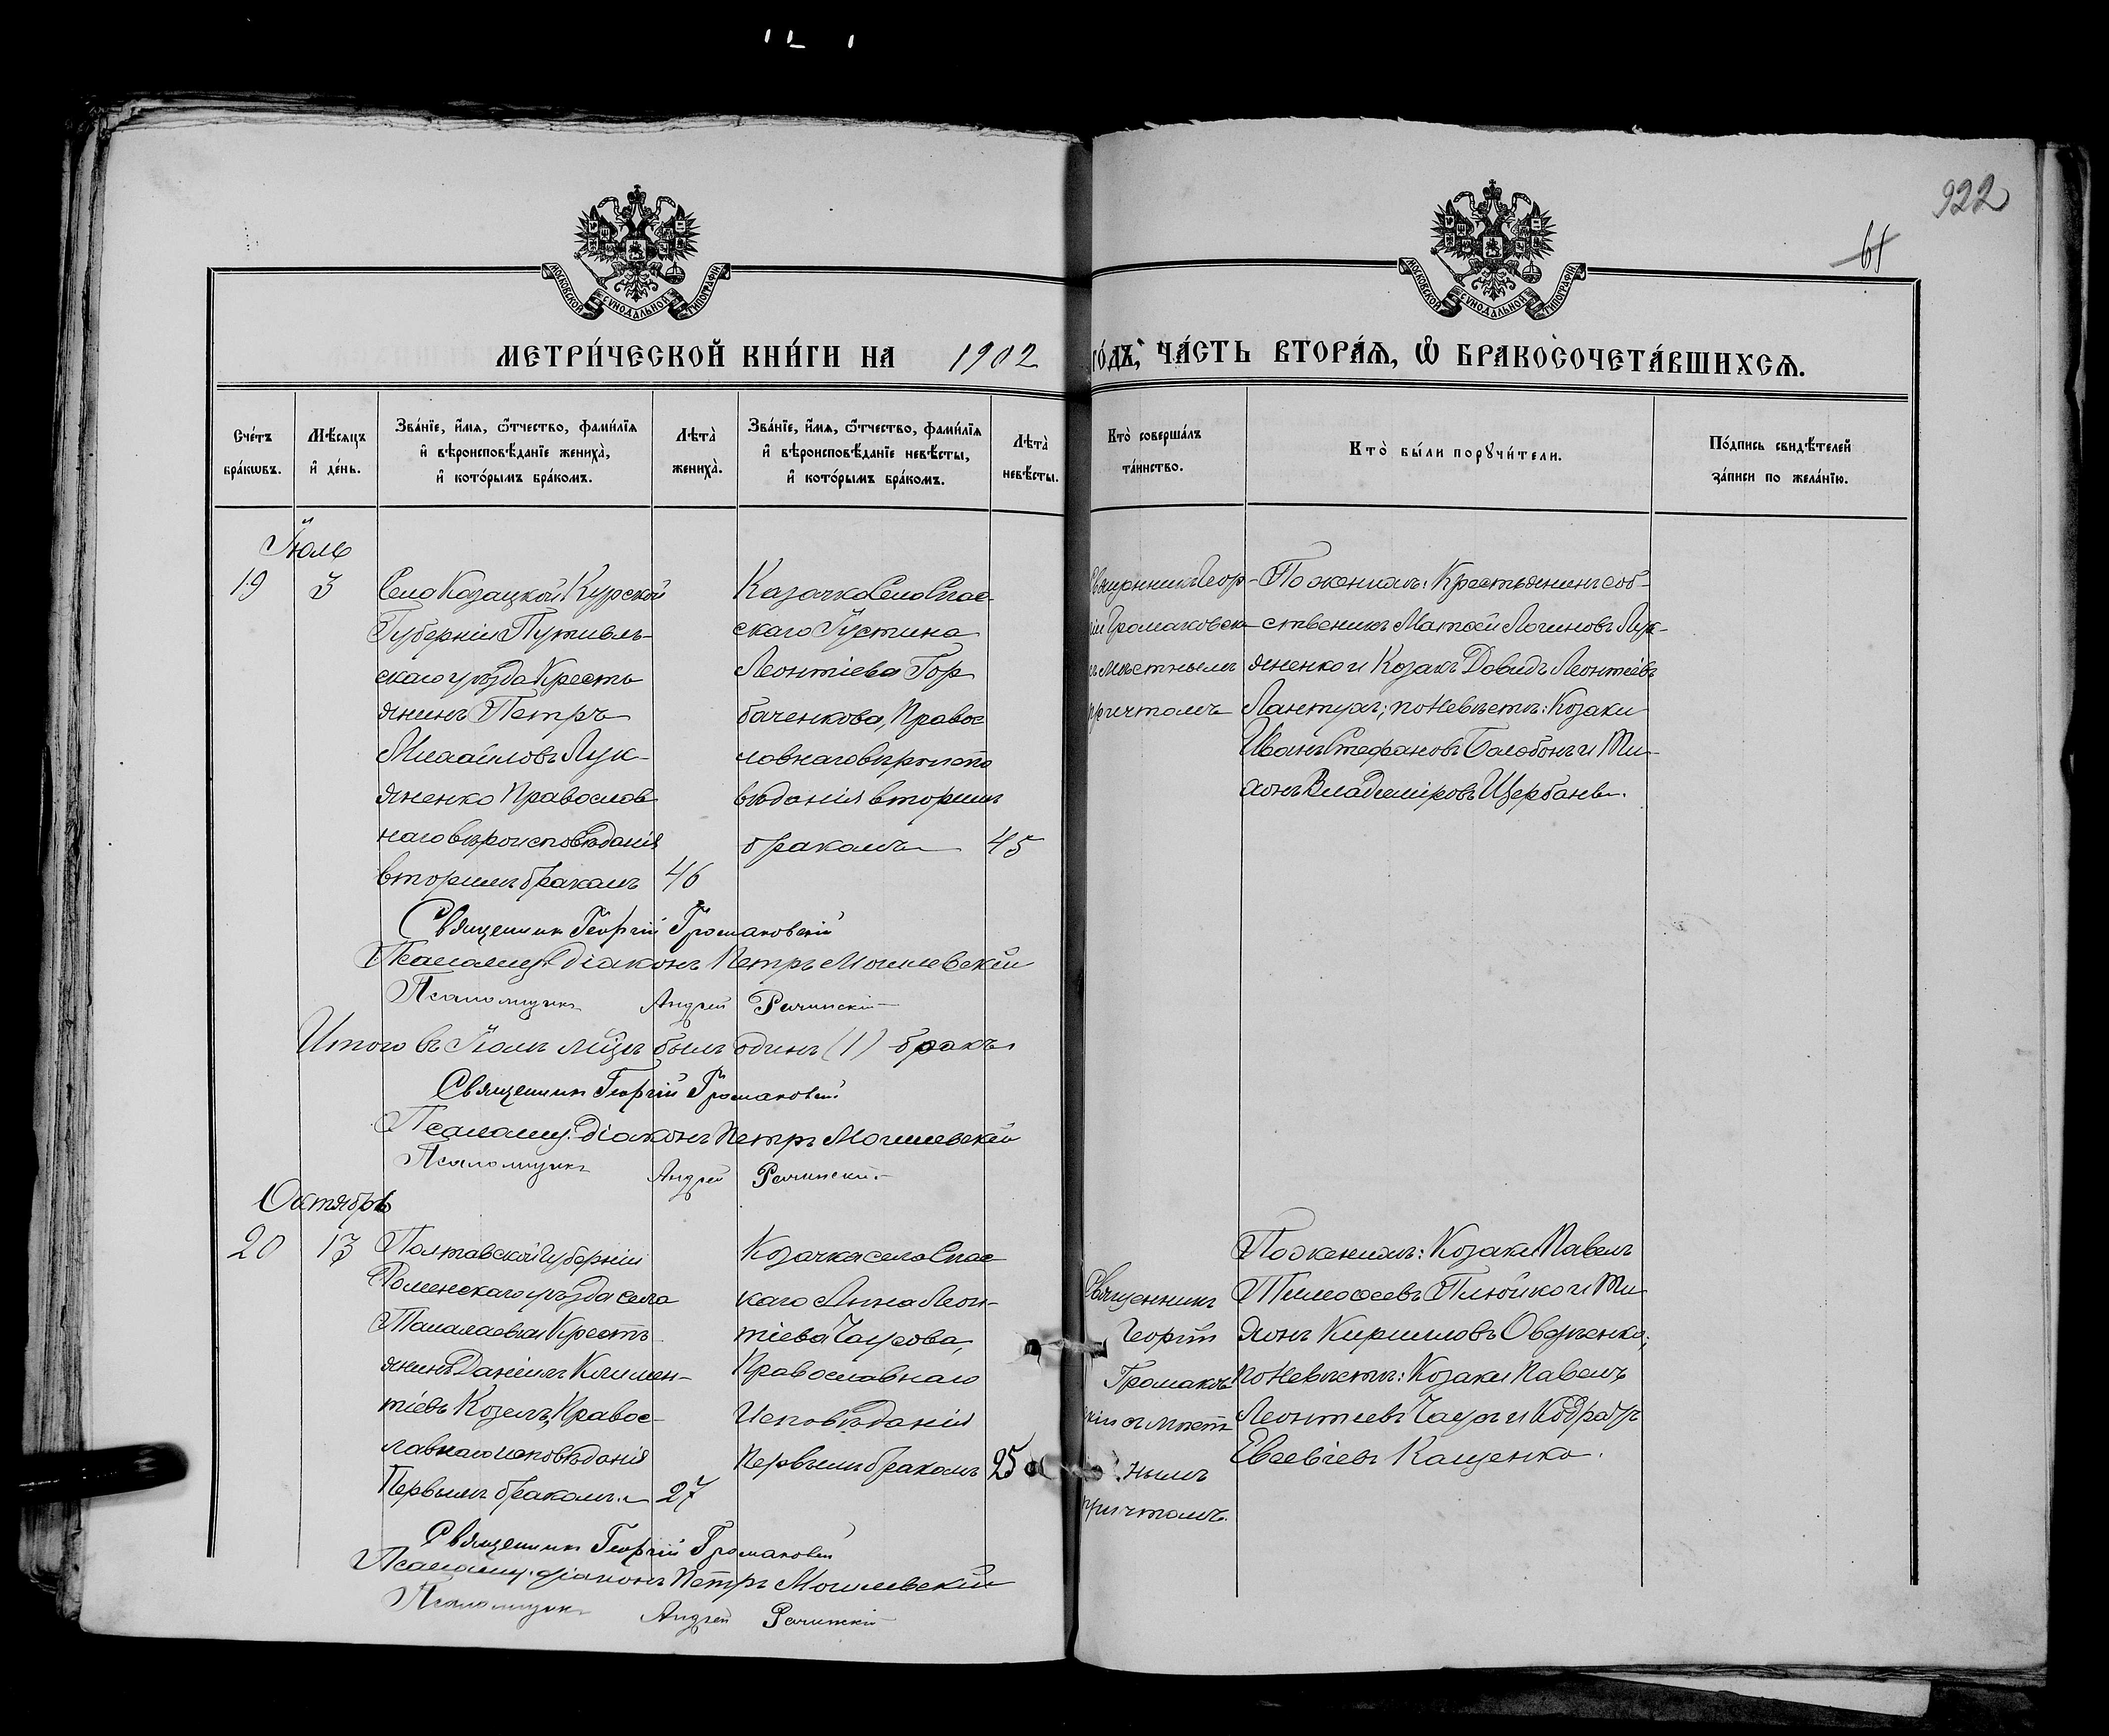 922
61
МОСКОВСКОЙ СѴНОДАЛЬНОЙ ТИПОГРАФІИ
МОСКОВСКОЙ СѴНОДАЛЬНОЙ ТИПОГРАФІИ
МЕТРИ́ЧЕСКОЙ КНИ́ГИ НА 1902 ГО́ДЪ, ЧА́СТЬ ВТОРА́Ѧ, Ѡ҆ БРАКОСОЧЕТА́ВШИХСѦ.
Сче́тъ бра́кѡвъ.
Мѣ́сяцъ и҆ де́нь.
Зва́нїе, и҆́мя, ѻ҆́тчество, фами́лїя и҆ вѣроисповѣ́данїе жениха̀, и҆ кото́рымъ бра́комъ.
Лѣта̀ жениха̀.
Зва́нїе, и҆́мя, ѻ҆́тчество, фами́лїя и҆ вѣроисповѣ́данїе невѣ́сты, и҆ кото́рымъ бра́комъ.
Лѣта̀ невѣ́сты.
Кто̀ соверша́лъ та́инство.
Кто̀ бы́ли порꙋчи́тели.
По́дпись свидѣ́телей за́писи по жела́нїю.
Іюль
19
3
Село Козацкой Курской
Губерніи Путивль-
скаго уѣзда Кресть
янинъ Петръ
Михайловъ Лук-
яненко Православ
наго вѣроисповѣданія
вторымъ бракомъ 46
Казачка Село Спас-
скаго Густина
Леонтіева Гор
баченкова, Правос
лавнаго вѣроиспо
вѣданія вторымъ
бракомъ 45
Священникъ Геор-
гій Громаковск-
съ мѣстнымъ
причтомъ
По женихѣ: Крестьянинъ соб-
ственикъ Матѳей Логиновъ Лук-
яненко и Козакъ Давидъ Леонтіевъ
Лантухъ; по Невѣстѣ: Козаки
Иванъ Стефановъ Балобонъ и Ти-
хонъ Владиміровъ Щербань.
Священникъ Георгій Громаковскій
Псаломщ. діаконъ Петръ Могилевскій
Псаломщикъ Андрей Речинскій
Итого въ Іюлѣ м-цѣ былъ одинъ (1) бракъ
Священникъ Георгій Громаковскій
Псаломщ. діаконъ Петръ Могилевскій
Псаломщикъ Андрей Речинскій
Октябрь
20
13
Полтавской Губерніи
Роменскаго уѣзда села
Талалаевки Кресть-
янинъ Даніилъ Климен-
тіевъ Козелъ, Правос-
лавнаго исповѣданія
Первымъ бракомъ 27
Козачка села Спас
каго Анна Леон-
тіева Чаусова,
Православнаго
Исповѣданія
Первымъ бракомъ 25
Священникъ
Георгій
Громаков
скій съ мѣст
нымъ
причтомъ.
По женихѣ: Козаки Павелъ
Тимоѳеевъ Плюйко и Ти
хонъ Кирилловъ Овдѣенко;
по Невѣстѣ: Козаки Павелъ
Леонтіевъ Чаусъ и Кодратъ
Евсевіевъ Кащенко.
Священникъ Георгій Громаковскій
Псаломщ. діаконъ Петръ Могилевскій
Псаломщикъ Андрей Речинскій